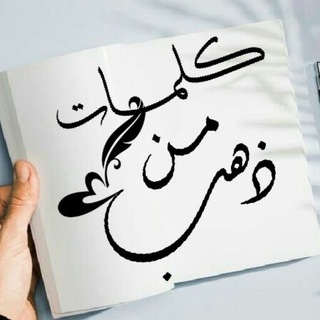 كلمات
من
ذهب